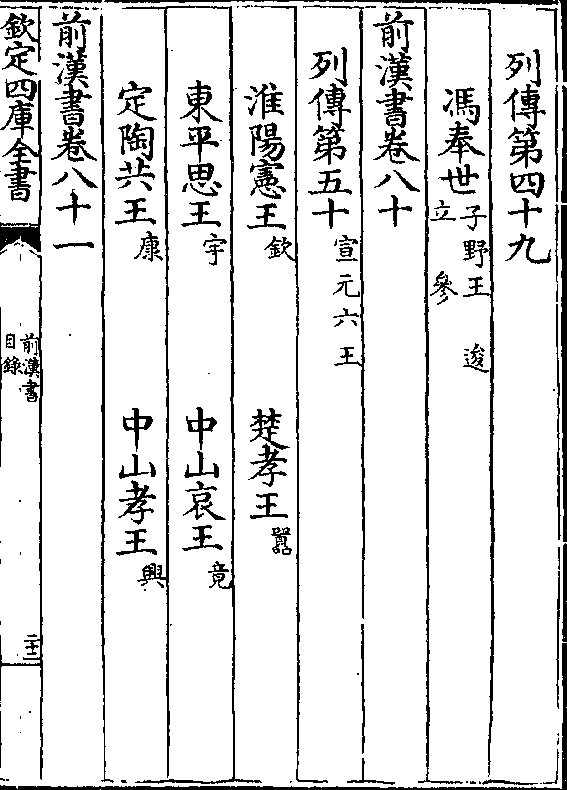 列傳第四十九
馮奉世子野王 逡 立 參
前漢書卷八十
列傳第五十宣元六王
淮陽憲王欽 楚孝王囂
東平思王宇 中山哀王竟
定陶共王康 中山孝王興
前漢書卷八十一
欽定四庫全書
前漢書
目錄
二十二